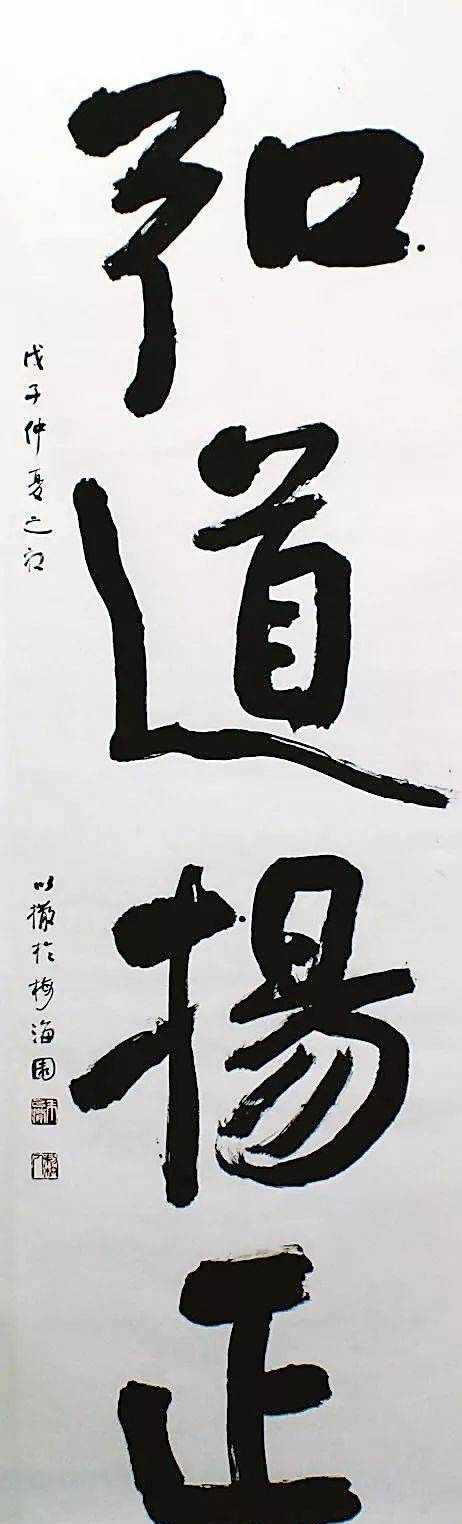 弘道揚正
戊子仲夏之初
以撒於梅海園